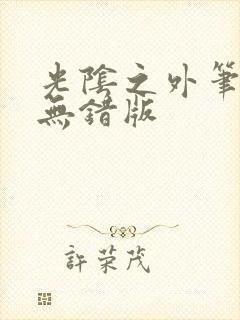 光陰之外筆
無錯版
許荣茂